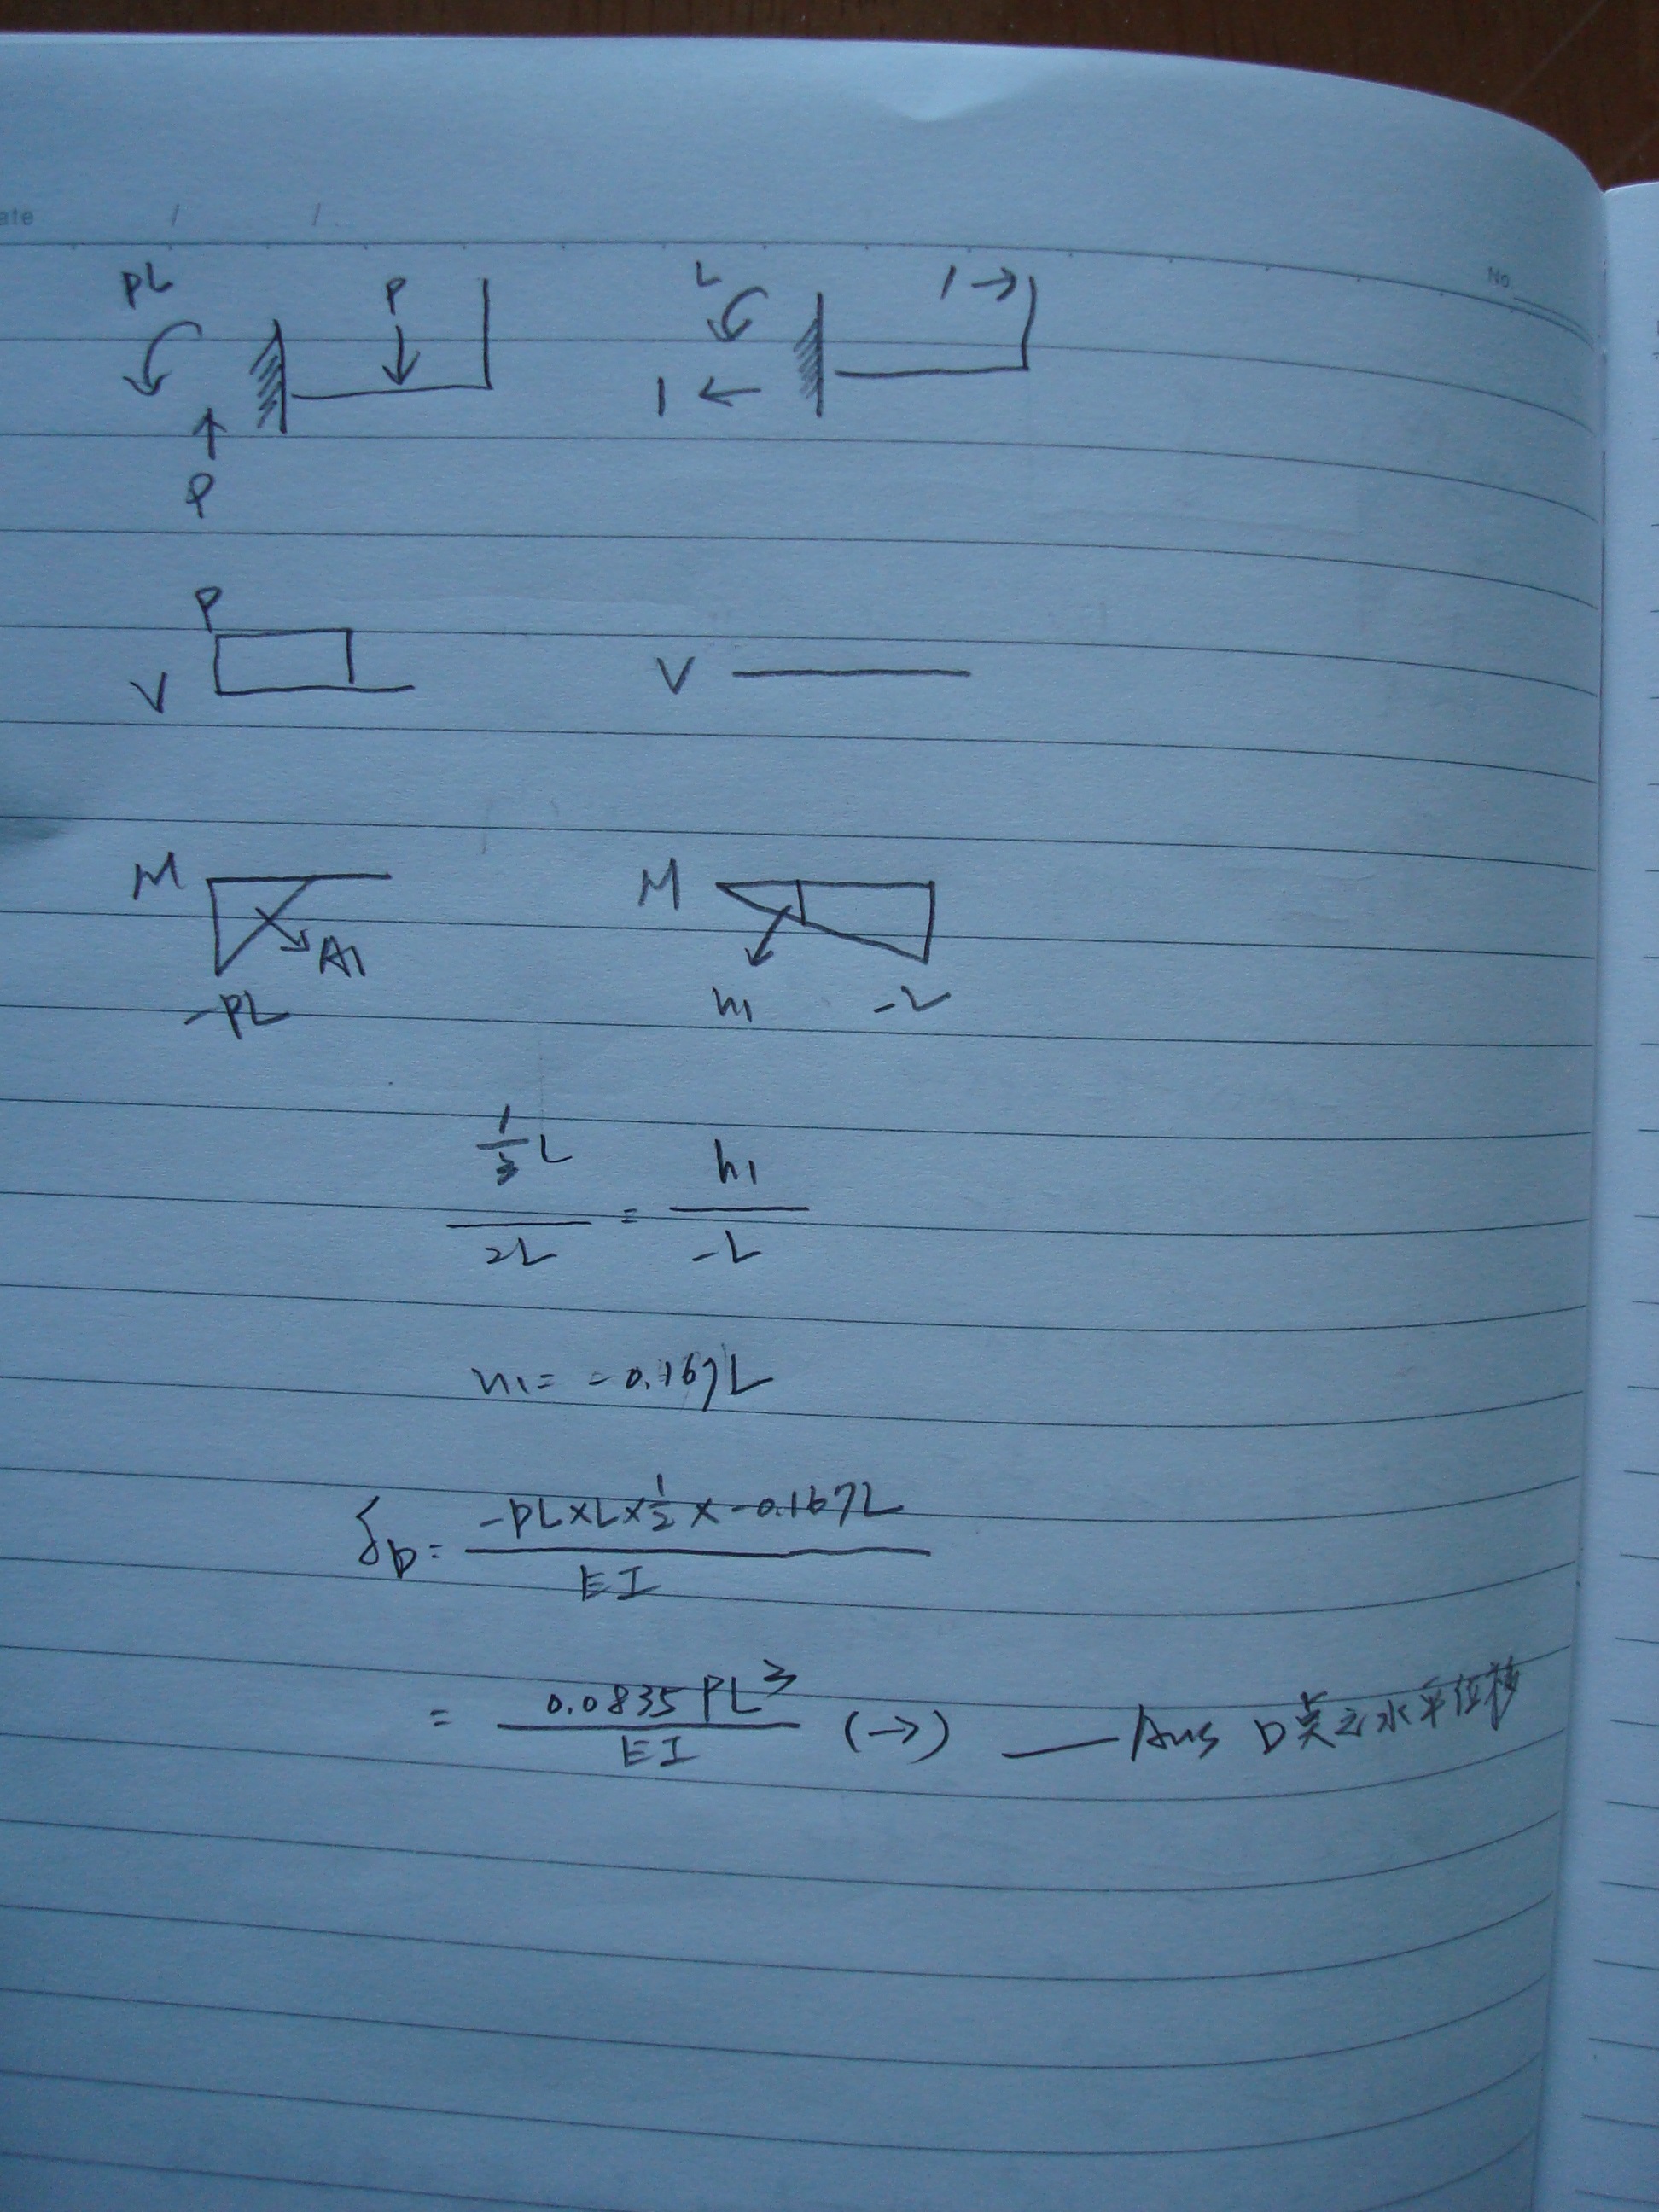 ate / /
No
PL P L 1→
1 ←
P
P
V V
M M
A1
-PL h1 -L
1/3 L / 2L = h1 / -L
h1 = -0.167L
δD = -PL×L×1/2×-0.167L / EI
= 0.0835PL³ / EI (→) — Ans D点之水平位移